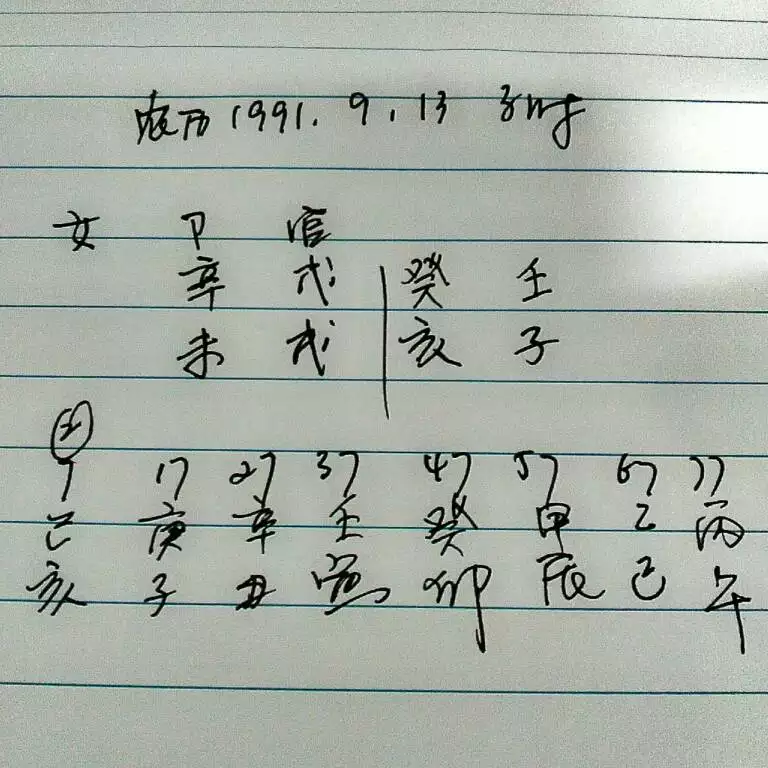 农历1991.9.13 子时
女 卩 官
辛 戊 癸 壬
未 戌 亥 子
7 17 27 37 47 57 67 77
己 庚 辛 壬 癸 甲 乙 丙
亥 子 丑 寅 卯 辰 巳 午